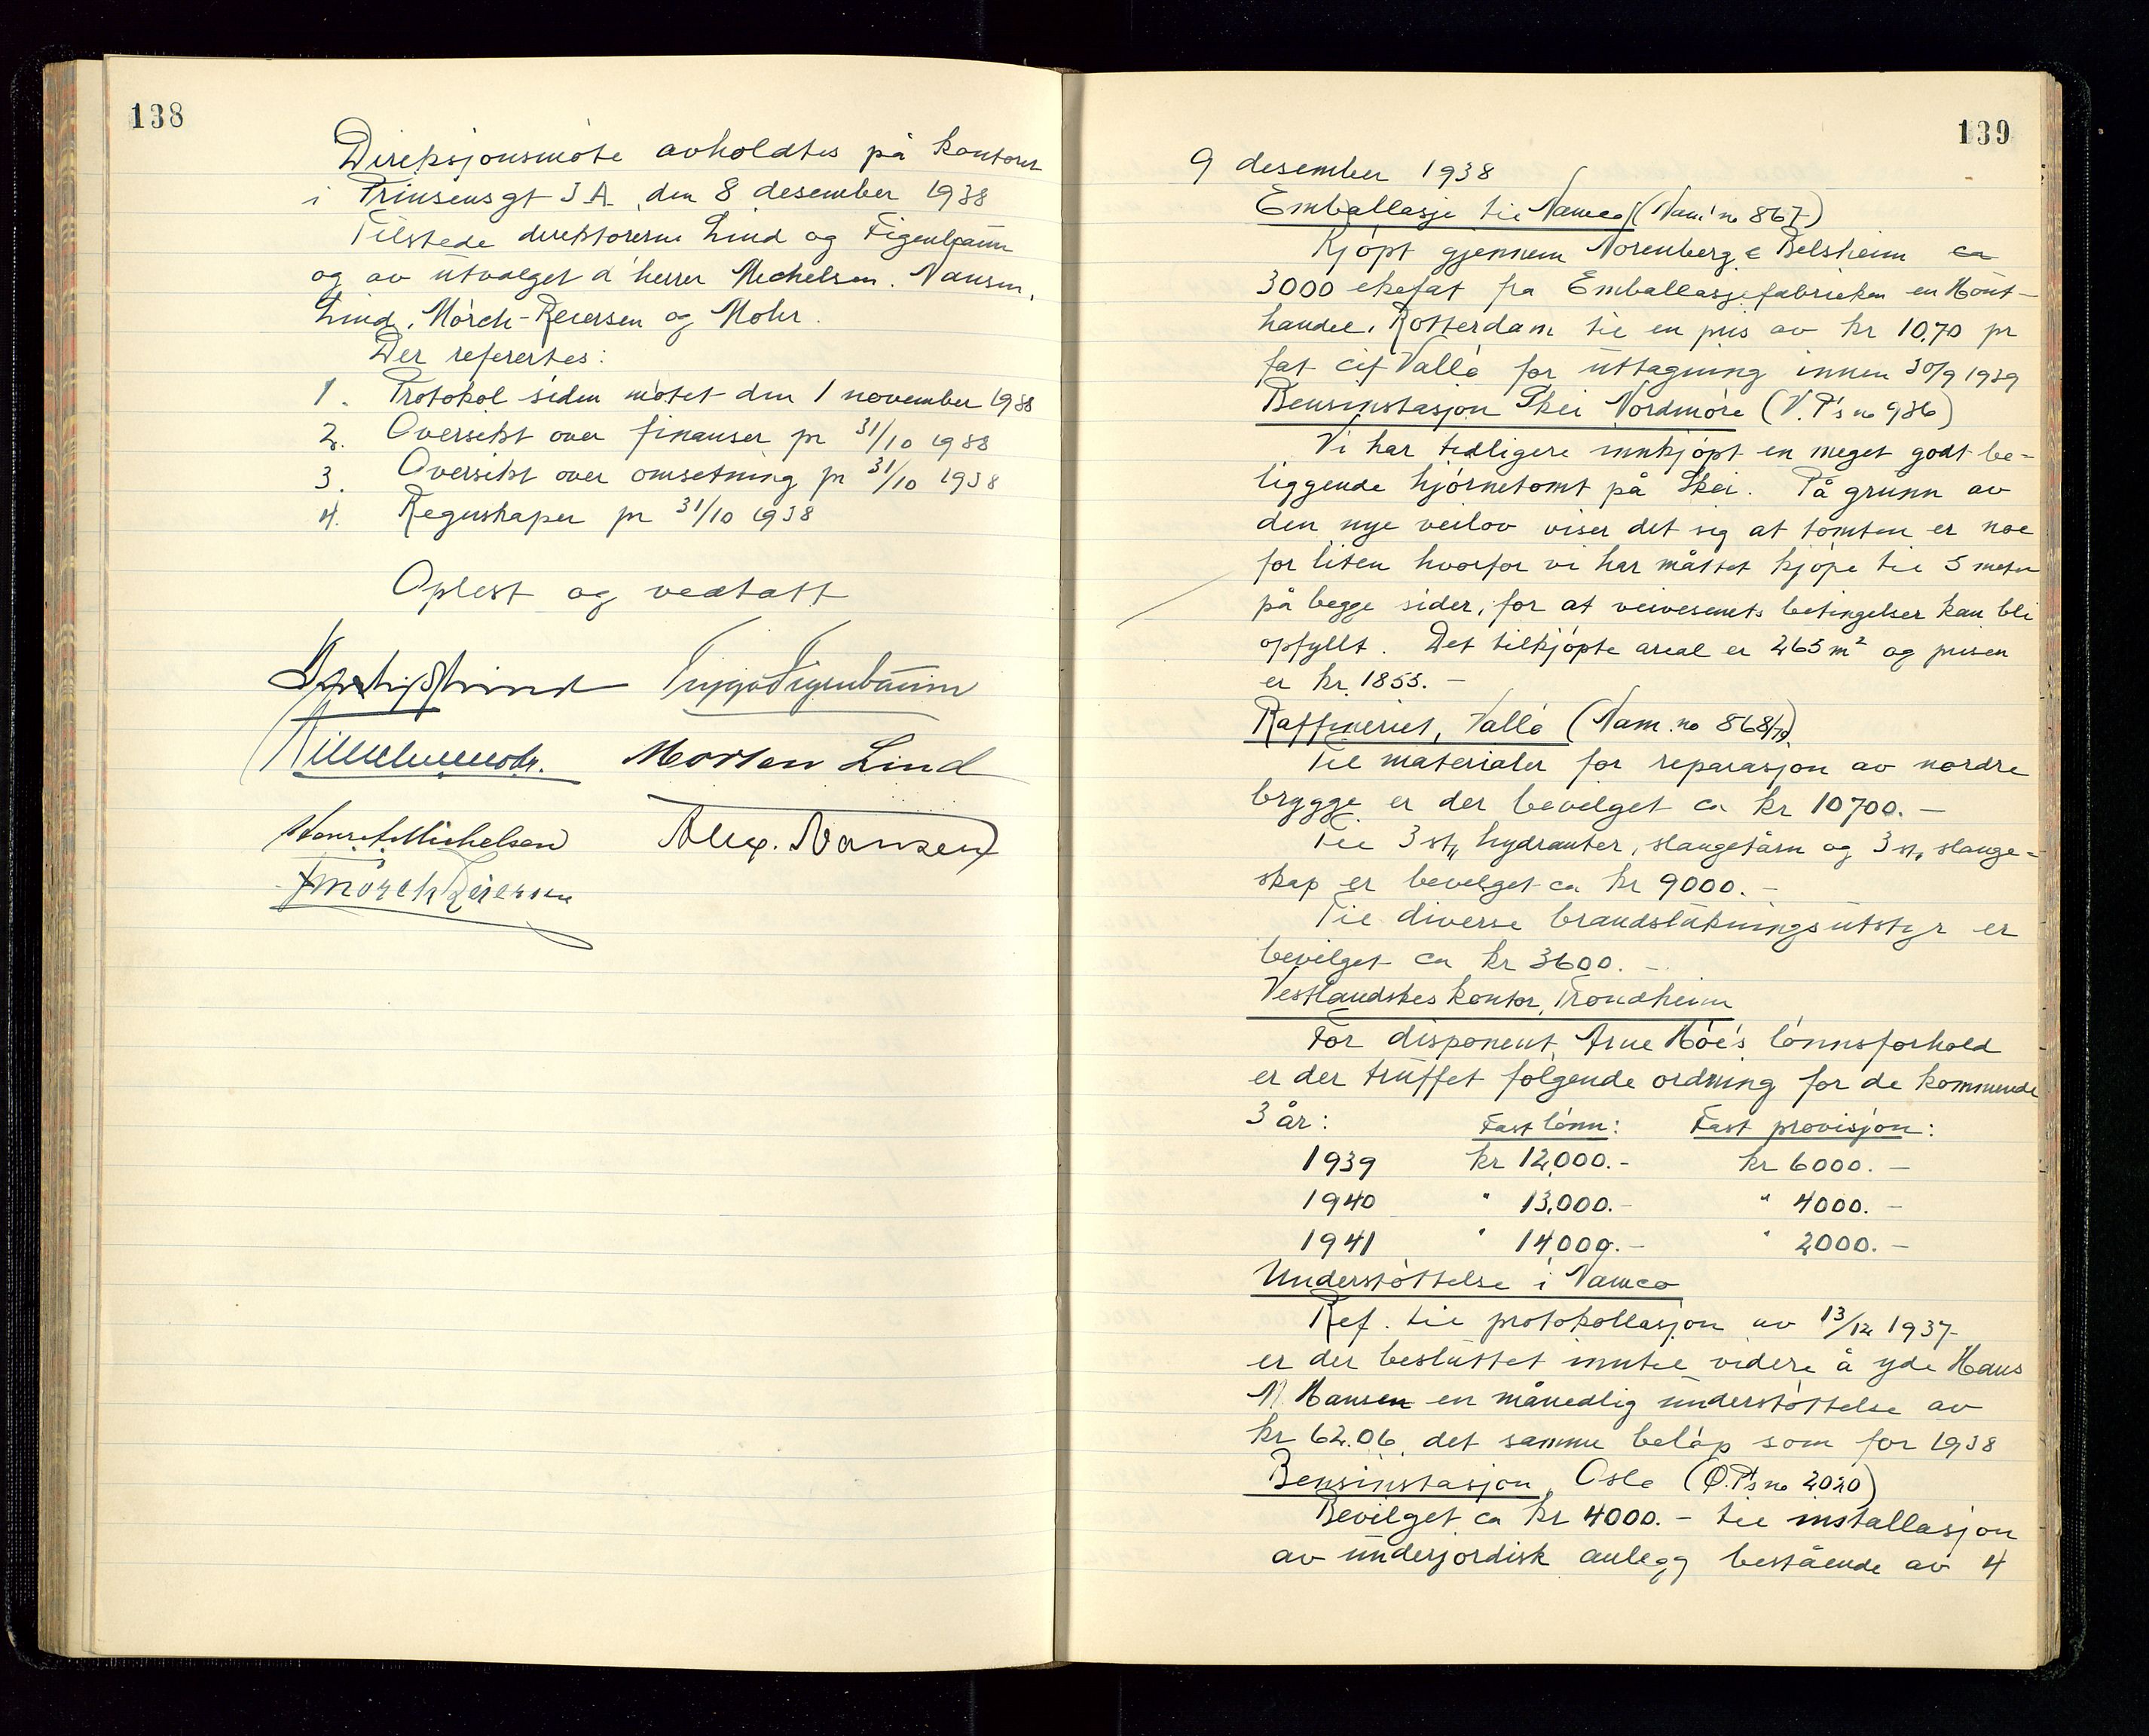 138
Direksjonsmöte avholdtes på kontoret
i Prinsensgt 3 A. den 8 desember 1938
Tilstede direktörerne Lind og Figenbaum
og av utvalget d'herrer Michelsen. Nansen,
Lind, Mörch-Reiersen og Mohr.
Der refertes:
1. Protokol siden mötet den 1 november 1938
2. Oversikt over finanser pr 31/10 1938
3. Oversikt over omsetning pr 31/10 1938
4. Regnskaper pr 31/10 1938
Oplest og vedtatt
Trygve Figenbaum
Morten Lind
Michelsen
Alex. Nansen
Mörch Reiersen
139
9 desember 1938
Emballasje til Namco (Nam' no 867)
Kjöpt gjennem Norenberg & Belsheim ca
3000 ekefat fra Emballagefabrieken en Hout-
handel, Rotterdam til en pris av kr 10,70 pr
fat cif Vallö for uttagning innen 30/9 1939
Bensinstasjon Skei Nordmöre (V.P's no 936)
Vi har tidligere innkjöpt en meget godt be-
liggende hjörnetomt på Skei. På grunn av
den nye veilov viser det sig at tomten er noe
for liten hvorfor vi har måttet kjöpe til 5 meter
på begge sider, for at veivesenets betingelser kan bli
opfyllt. Det tilkjöpte areal er 265 m² og prisen
er kr. 1855.-
Raffineriet, Vallö (Nam. no 868/70)
Til materialer for reparasjon av nordre
brygge er der bevilget ca kr 10700.-
Til 3 st, hydranter, slangetårn og 3 st, slange-
skap er bevilget ca kr 9000.-
Til diverse brandslukningsutstyr er
bevilget ca kr 3600.-
Vestlandskes kontor, Trondheim
For disponent Arne Höe's lönnsforhold
er der truffet fölgende ordning for de kommende
3 år: Fast lönn: Fast provisjon:
1939 kr 12,000.- kr 6000.-
1940 " 13,000.- " 4000.-
1941 " 14,000.- " 2000.-
Understöttelse i Namco
Ref. til protokollasjon av 13/12 1937
er der besluttet inntil videre å yde Hans
M. Hansen en månedlig understöttelse av
kr 62.06, det samme belöp som for 1938
Bensinstasjon, Oslo (Ø.P's no 2020)
Bevilget ca kr 4000.- til installasjon
av underjordisk anlegg bestående av 4